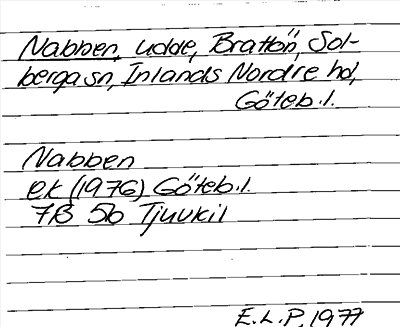 Nabben, udde, Brattön, Sol-
berga sn, Inlands Nordre hd,
Göteb. l.
Nabben
ek (1976) Göteb. l.
7B 5b Tjuvkil
E.L.P. 1977